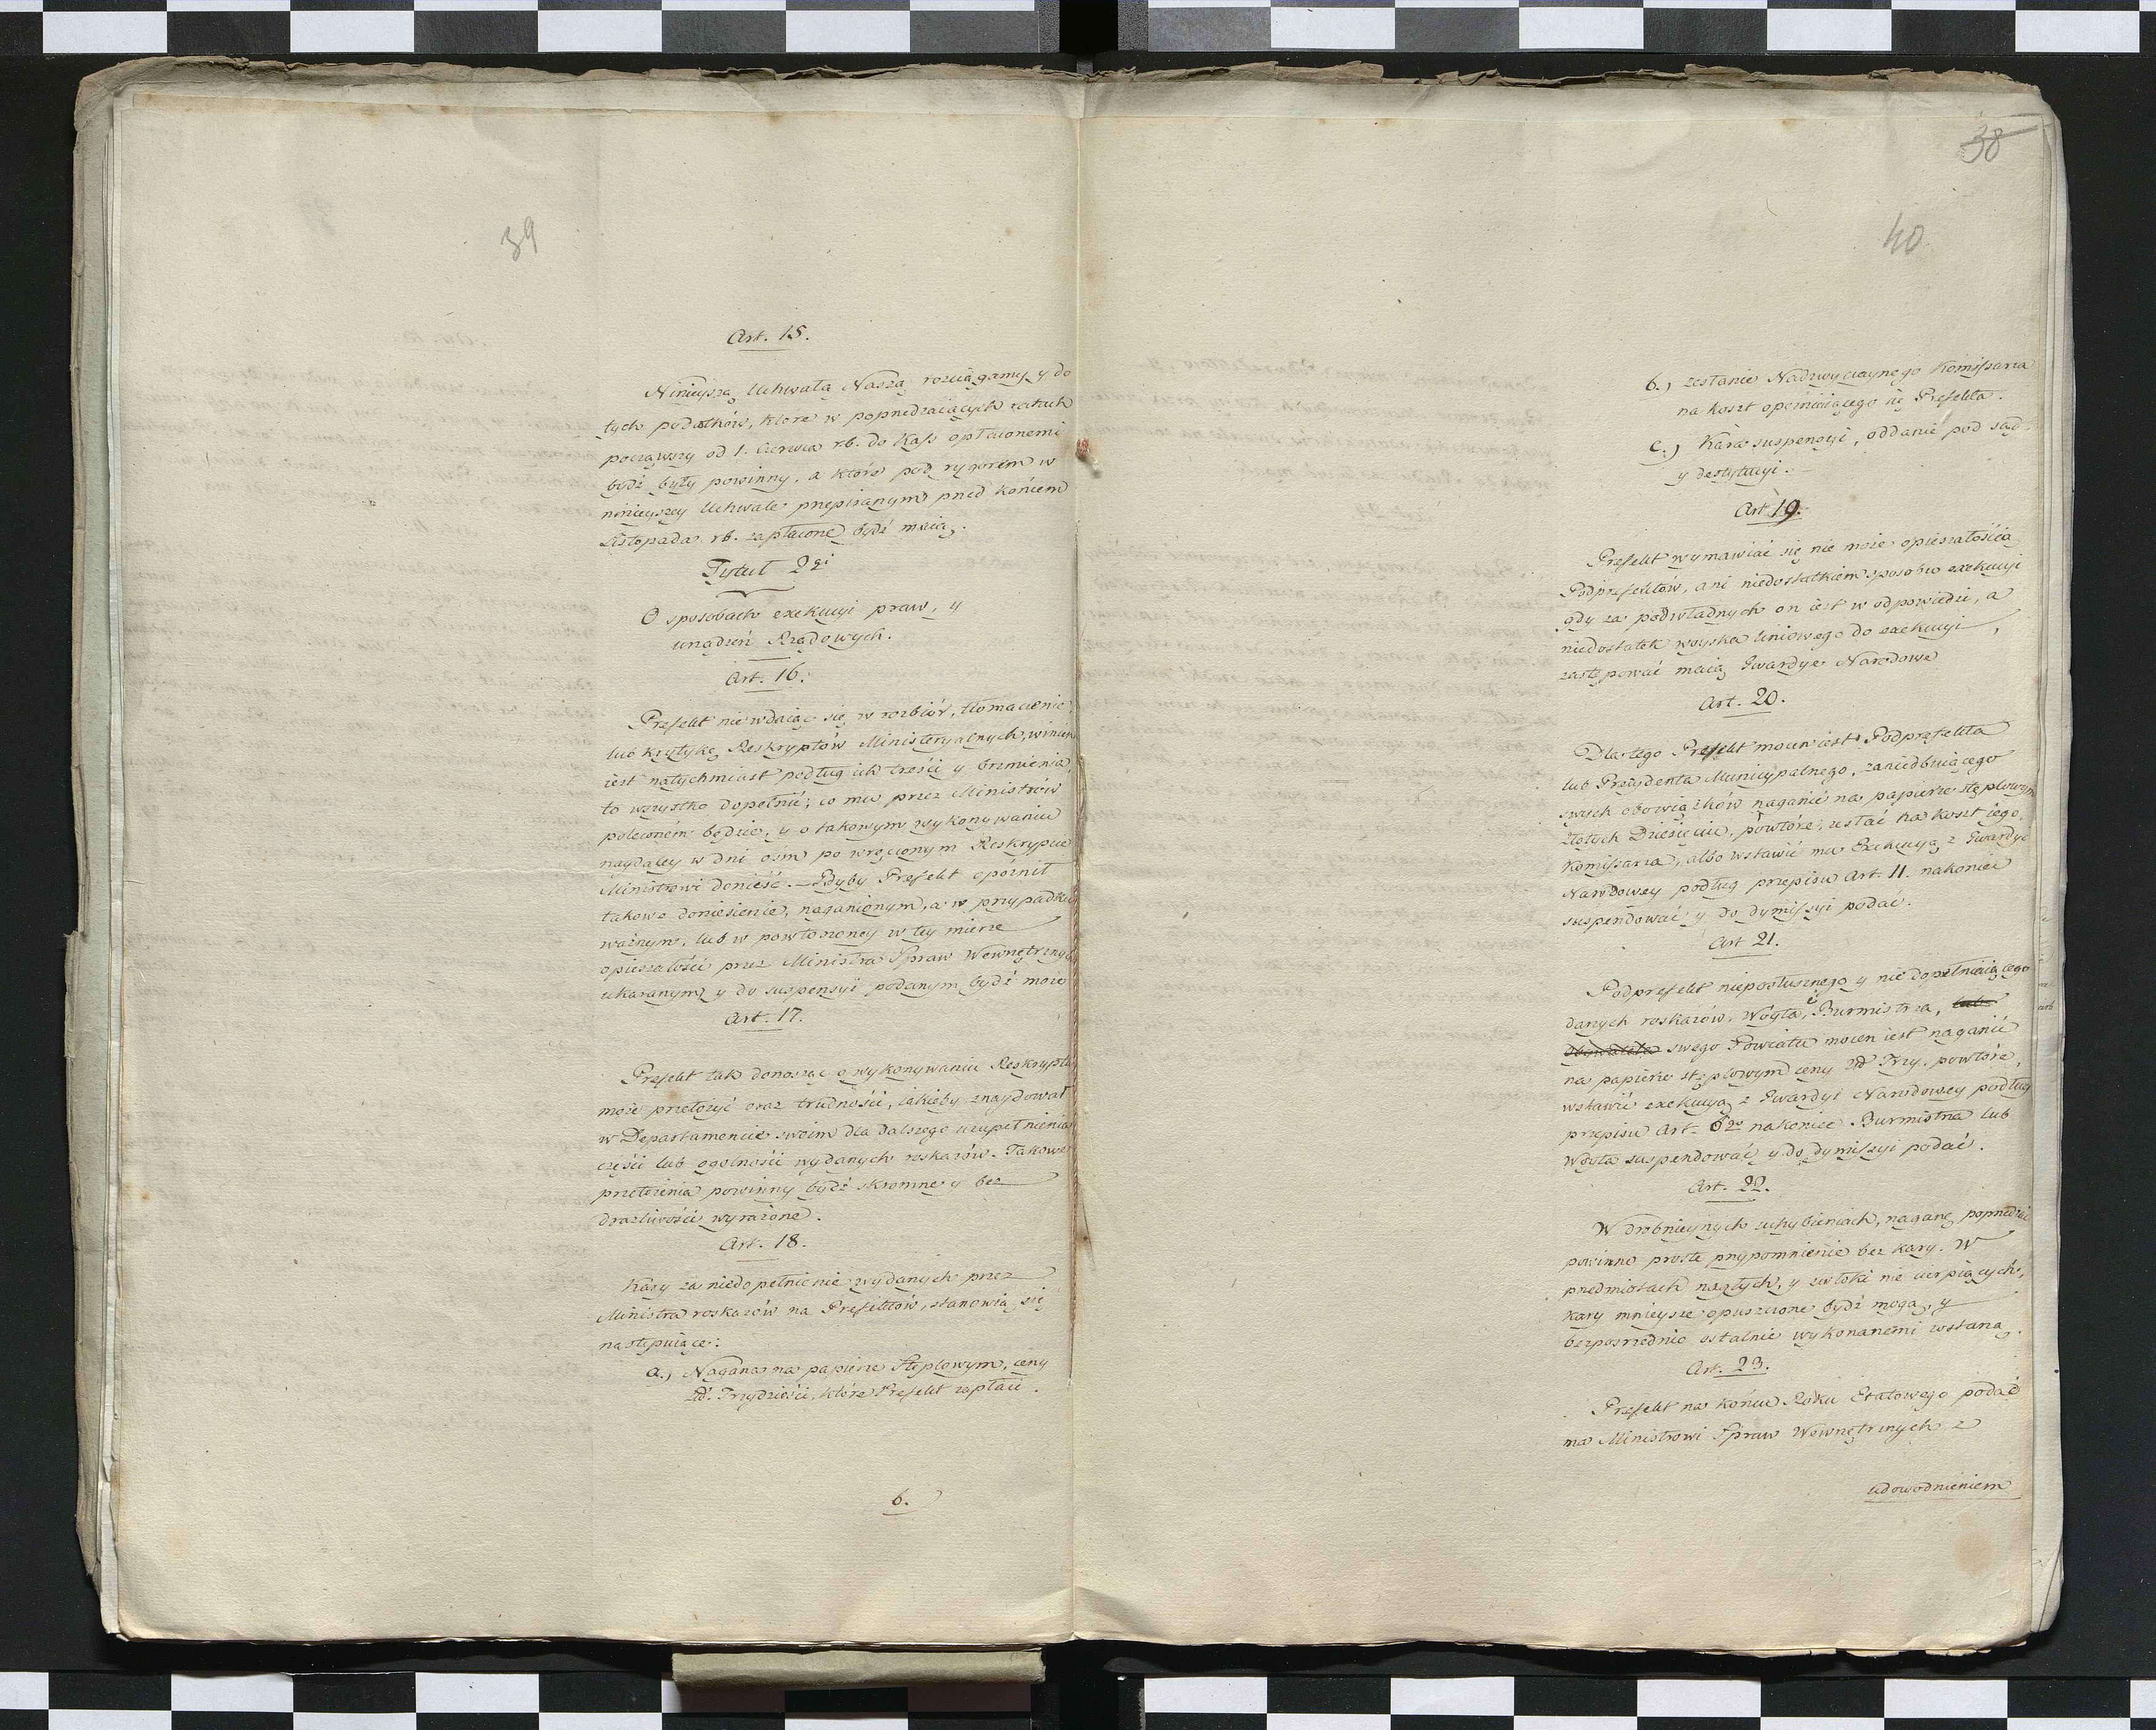 39
Art. 15.
Ninieyszą Uchwałą Naszą rozciągamy y do
tych podatków, które w poprzedzaiących ratach
począwszy od 1. Czerwca rb. do Kass opłaconemi
bydź były powinny, a które pod rygorem w
ninieyszey Uchwale przepisanym przed końcem
Listopada rb. zapłacone bydź maią.
Tytuł 2gi
O sposobach exekucyi praw, y
urządzeń Rządowych.
Art. 16.
Prefekt nie wdaiąc się w rozbiór, tłomaczenie,
lub krytykę Reskryptów Ministeryalnych, winien
iest natychmiast podług ich treści y brzmienia
to wszystko dopełnić; co mu przez Ministrów
poleconém będzie, y o takowym wykonywaniu
naydaley w dni ośm po wręczonym Reskrypcie
Ministrowi donieść. – Gdyby Prefekt opóźnił
takowe doniesienie, naganionym, a w przypadku
ważnym, lub w powtórzoney w tey mierze
opieszałości przez Ministra Spraw Wewnętrznych
ukaranym y do suspensyi podanym bydź może
Art. 17.
Prefekt tak donosząc o wykonywaniu Reskryptu
może przełożyć oraz trudności, iakieby znaydował
w Departamencie swoim dla dalszego uzupełnienia
części lub ogolności wydanych roskazów. Takowe
przełożenia powinny bydź skromne y bez
drażliwości wyrażone.
Art. 18.
Kary za niedopełnienie wydanych przez
Ministra roskazów na Prefektów, stanowią się
następuiące:
a.) Nagana na papierze Stęplowym, ceny
zł. Trzydzieści, które Prefekt zapłaci.
b.)
38
40
b.) zesłanie Nadzwyczaynego Komissarza
na koszt opóźniaiącego się Prefekta.
c.) Kara suspensyi, oddanie pod sąd
y destytucyi.
Art 19.
Prefekt wymawiać się nie może opieszałością
Podprefektów, ani niedostatkiem sposobu exekucyi
gdy za podwładnych on iest w odpowiedzi, a
niedostatek woyska liniowego do exekucyi,
zastępować maią Gwardye Narodowe
Art. 20.
Dla tego Prefekt mocen iest Podprefekta
lub Prezydenta Municypalnego, zaniedbuiącego
swych obowiązków naganić na papierze stęplowym
Złotych Dziesięciu, powtóre; zesłać na koszt iego,
Komissarza, albo wstawić mu Exekucyą z Gwardyi
Narodowey podług przepisu Art. 11. nakoniec
suspendować y do dymissyi podać.
Art 21.
Podprefekt nieposłusznego y nie dopełniaiącego
danych roskazów, Woyta, i Burmistrza, lub
Obywatela swego Powiatu mocen iest naganić
na papierze stęplowym ceny zł Trzy, powtóre,
wstawić exekucyą z Gwardyi Narodowey podług
przepisu Art. 6go nakoniec Burmistrza lub
Woyta suspendować y do dymissyi podać.
Art. 22.
W drobnieyszych uchybieniach, naganę poprzedzić
powinno proste przypomnienie bez kary. W
przedmiotach nagłych, y zwłoki nie cierpiących,
kary mnieysze opuszczone bydź mogą, y
bezpośrednio ostatnie wykonanemi zostaną.
Art. 23.
Prefekt na końcu Roku Etatowego podać
ma Ministrowi Spraw Wewnętrznych z
udowodnieniem